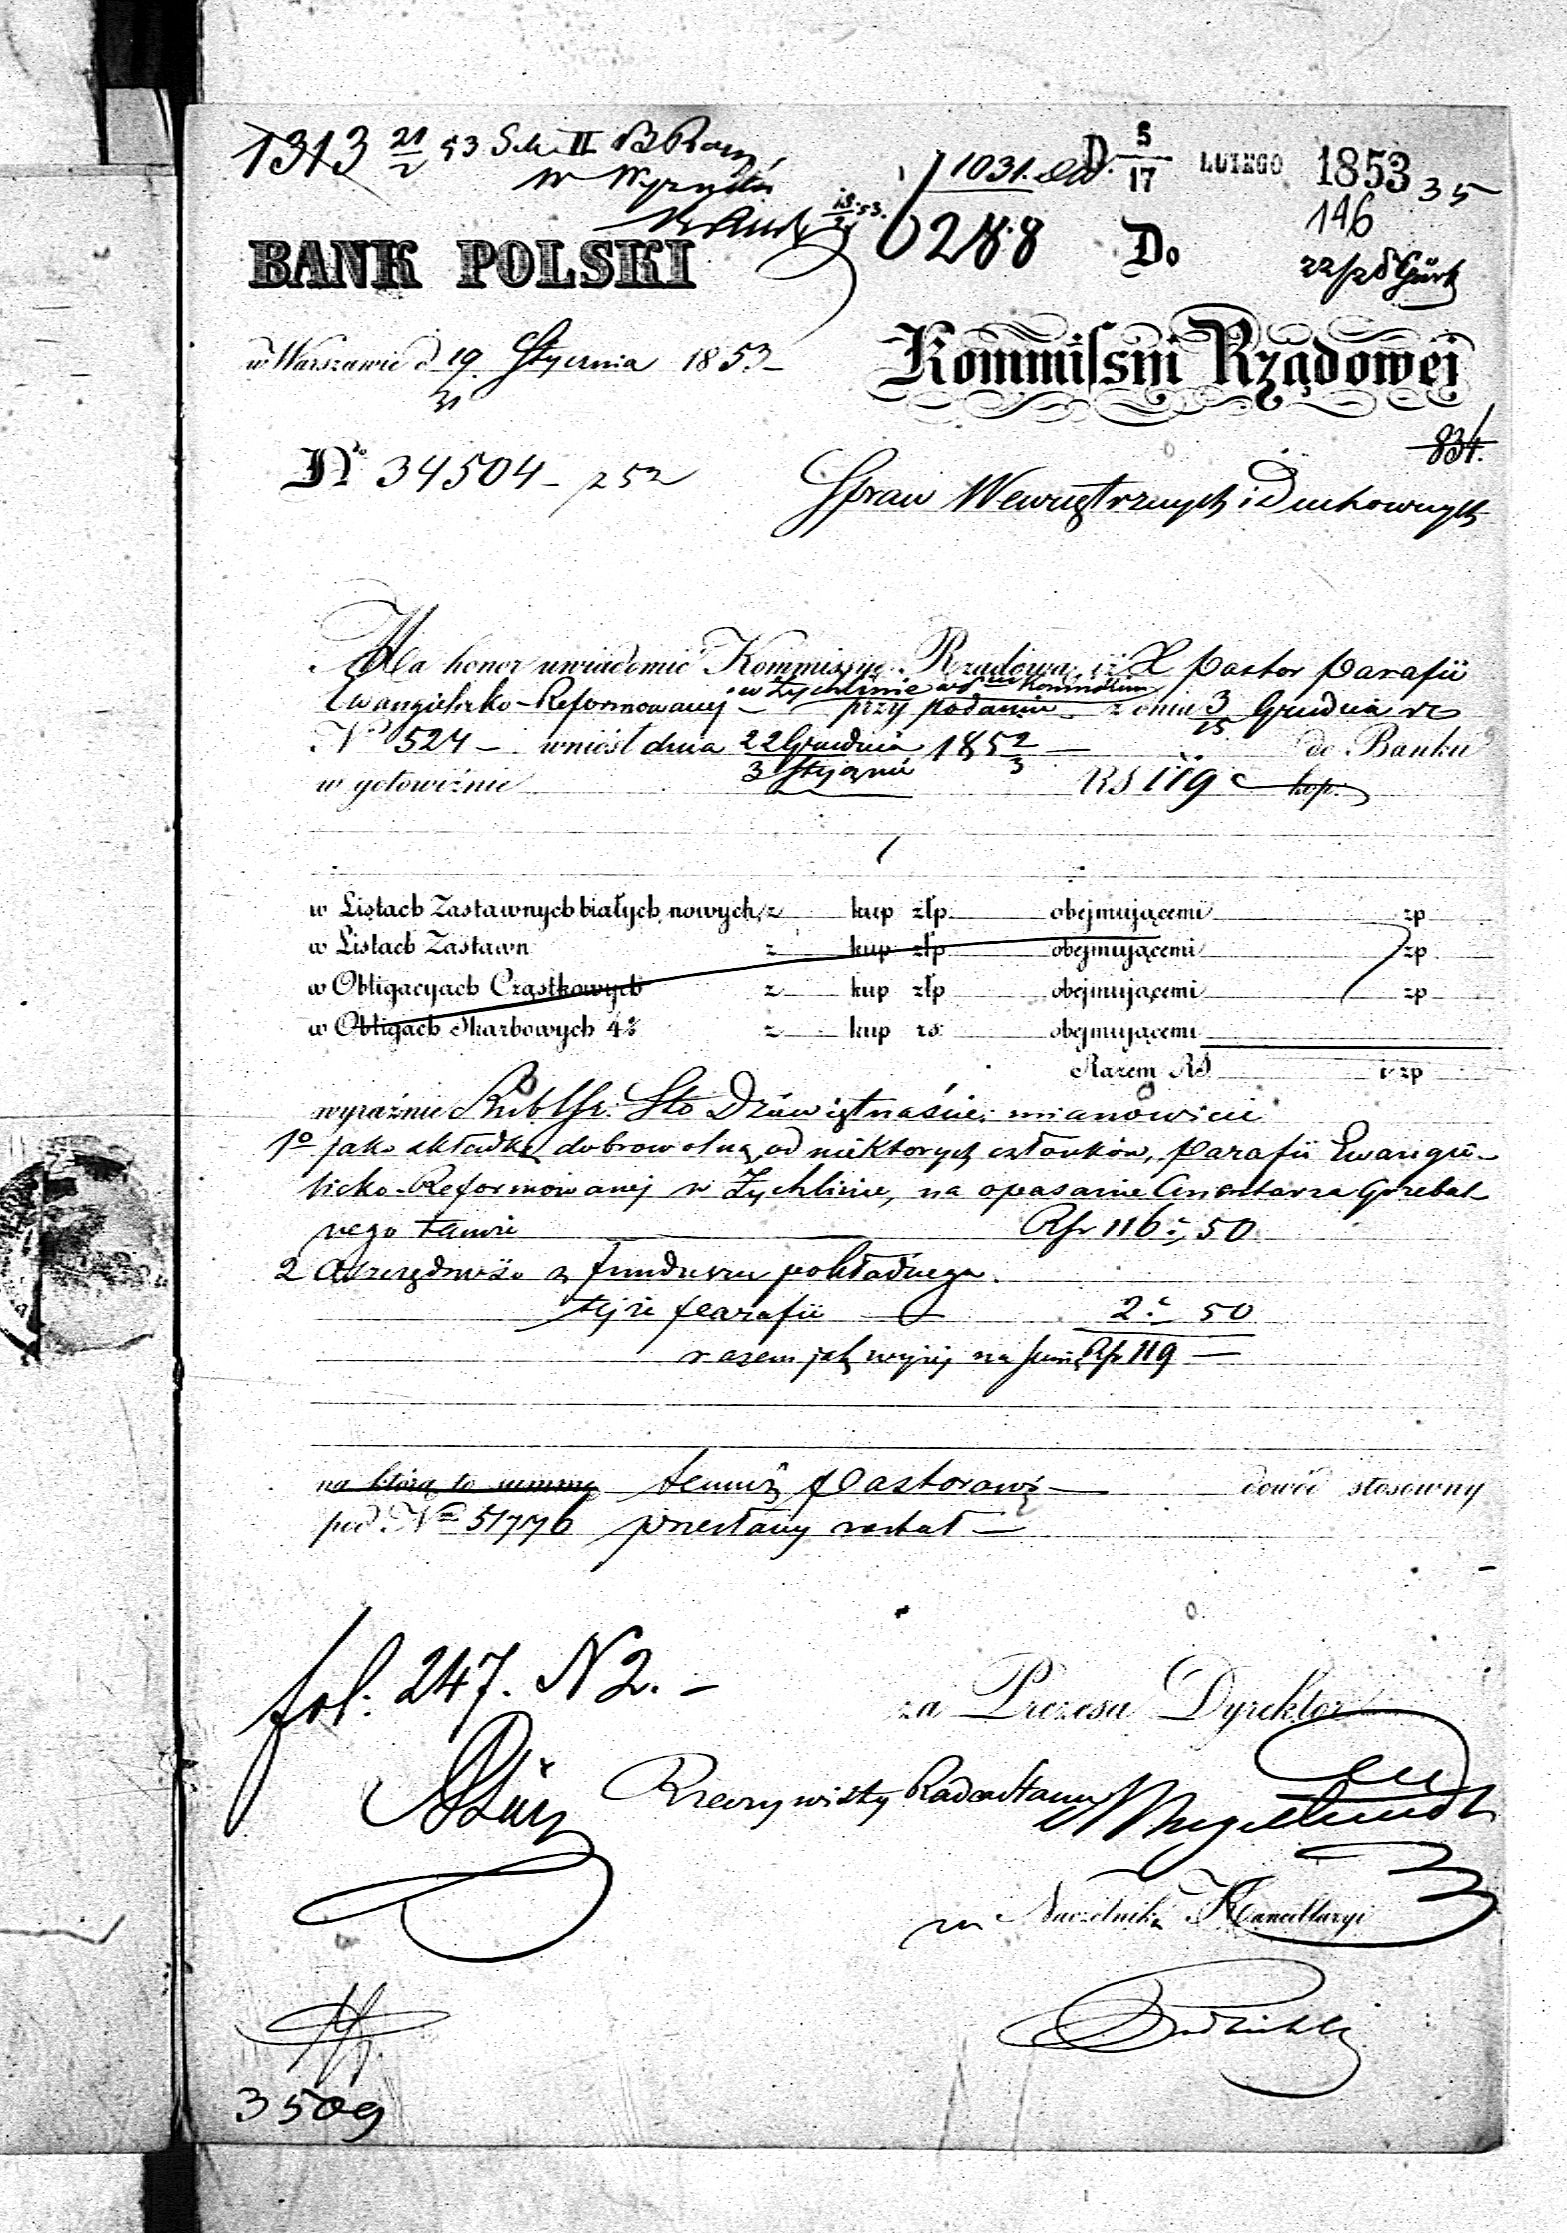 1313 21/2 53
1031. D. 5/17 LUTEGO 1853 35
146
6288 Do
22/2
BANK POLSKI
w Warszawie d 19/31 Stycznia 1853
Kommissyi Rządowej
834.
No 34504 - 252
Spraw Wewnętrznych i Duchownych
Ma honor uwiadomić Kommissyę Rządową, iż X Pastor Parafii
w Żychlinie
Ewangielicko-Reformowanej przy podaniu z dnia 3/15 Grudnia
No 524 - wniósł dnia 22 Grudnia/3 Stycznia 1852/3 do Banku
w gotowiźnie RS 119 kop.
w Listach Zastawnych białych nowych z kup złp obejmującemi zp
w Listach Zastawn z kup złp obejmującemi zp
w Obligacyach Cząstkowych z kup złp obejmującemi zp
w Obligach Skarbowych 4% z kup rs. obejmującemi
Razem RS i zp
wyraźnie Rub Sr. Sto Dziewiętnaście, mianowicie
1o jako składkę dobrowolną od niektorych członków, Parafii Ewangie-
licko-Reformowanej w Żychlinie, na opasanie Cmentarza Grzebal-
nego tamże Rsr 116 „ 50
2 Oszczędność z funduszu pokładnego
tejże parafii 2 „ 50
razem jak wyżej na summę Rsr 119 —
na którą to summę temuż Pastorowi dowód stosowny
pod No 51776 przesłany został —
fol. 247. N 2. -
za Prezesa Dyrektor
Rzeczywisty Radca Stanu
za Naczelnika Kancellaryi
3509